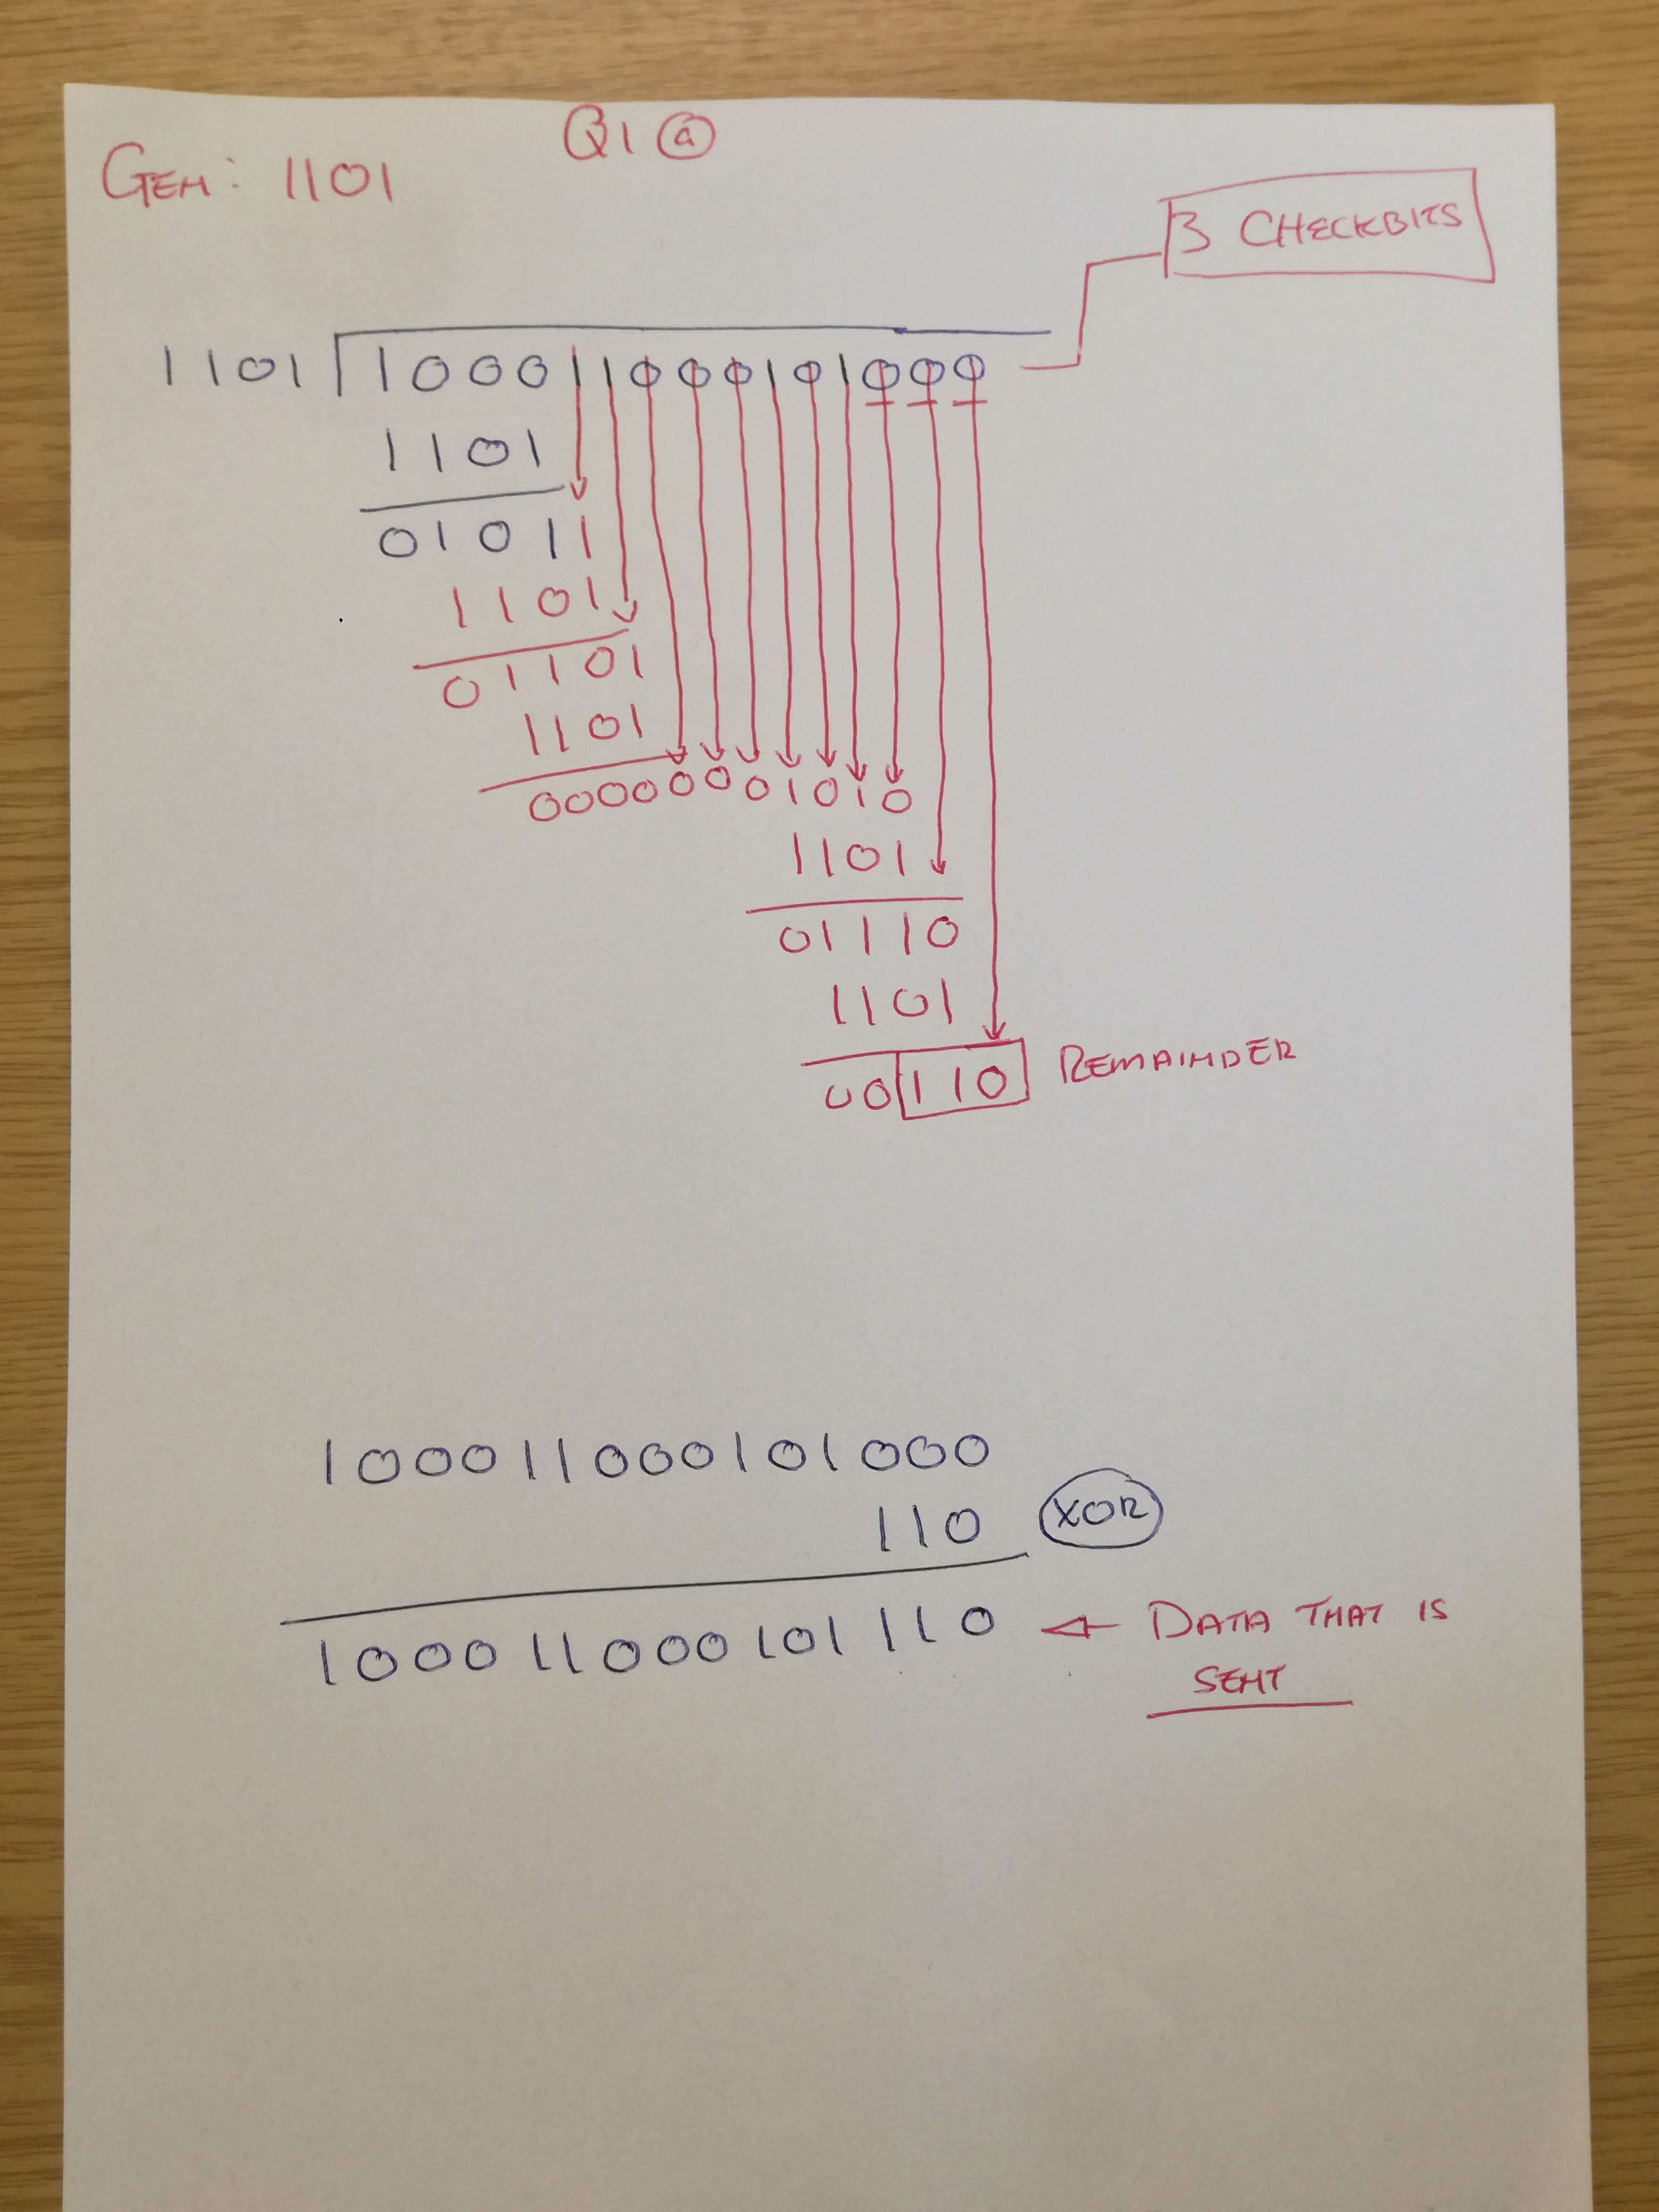 Q1 (a)
GEN: 1101
3 CHECKBITS
1101 100011000101000
1101
01011
1101
01101
1101
00000001010
1101
01110
1101
00110 REMAINDER
100011000101000
110 XOR
100011000101110 ← DATA THAT IS
SENT